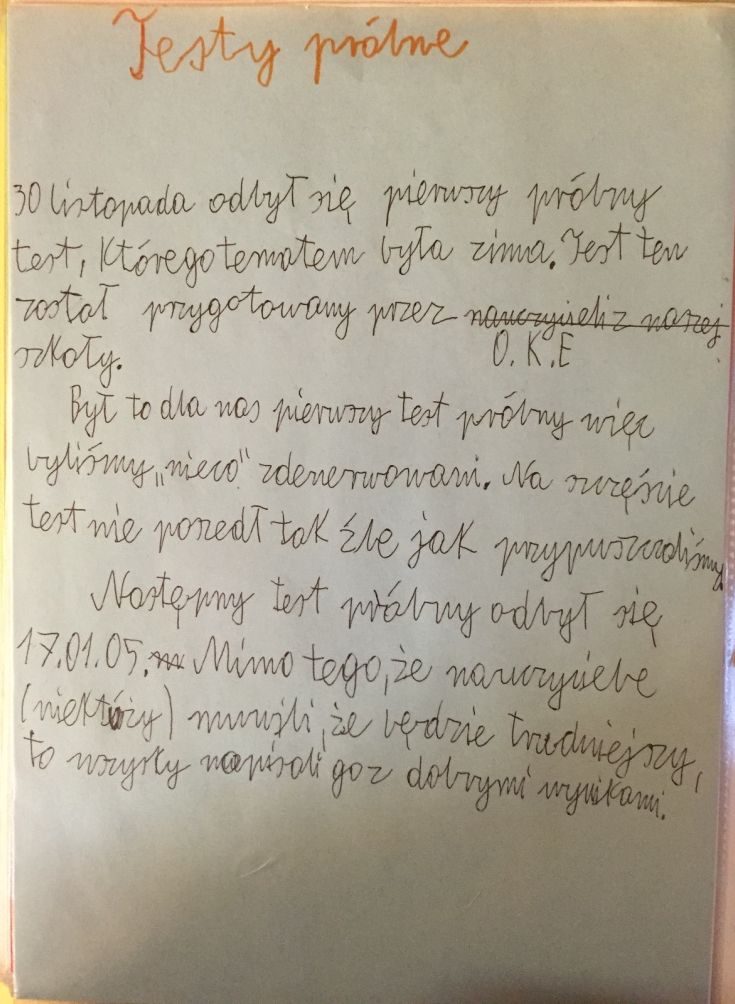 Testy próbne
30 listopada odbył się pierwszy próbny
test, którego tematem była zima. Test ten
został przygotowany przez nauczycieli z naszej
szkoły. O.K.E
Był to dla nas pierwszy test próbny więc
byliśmy „nieco" zdenerwowani. Na szczęście
test nie poszedł tak źlę jak przypuszczaliśmy.
Następny test próbny odbył się
17.01.05. Mimo tego, że nauczyciele
(niektórzy) mówili, że będzie trudniejszy,
to wszyscy napisali go z dobrymi wynikami.